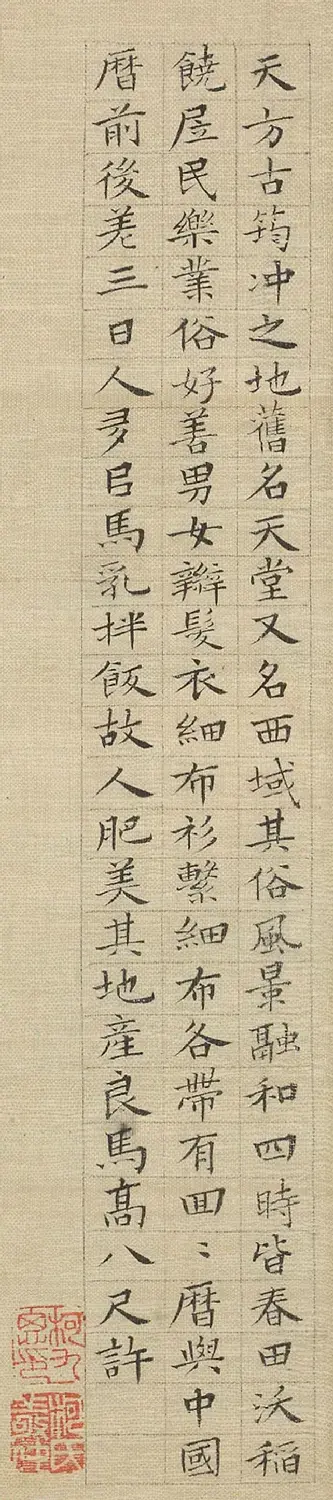 天方古筠冲之地舊名天堂又名西域其俗風景融和四時皆春田沃稻
饒居民樂業俗好善男女辮髮衣細布衫繫細布各帶有囬〻暦與中國
暦前後差三日人多㠯馬乳拌飯故人肥美其地產良馬髙八尺許
柯九思印
柯氏敬仲